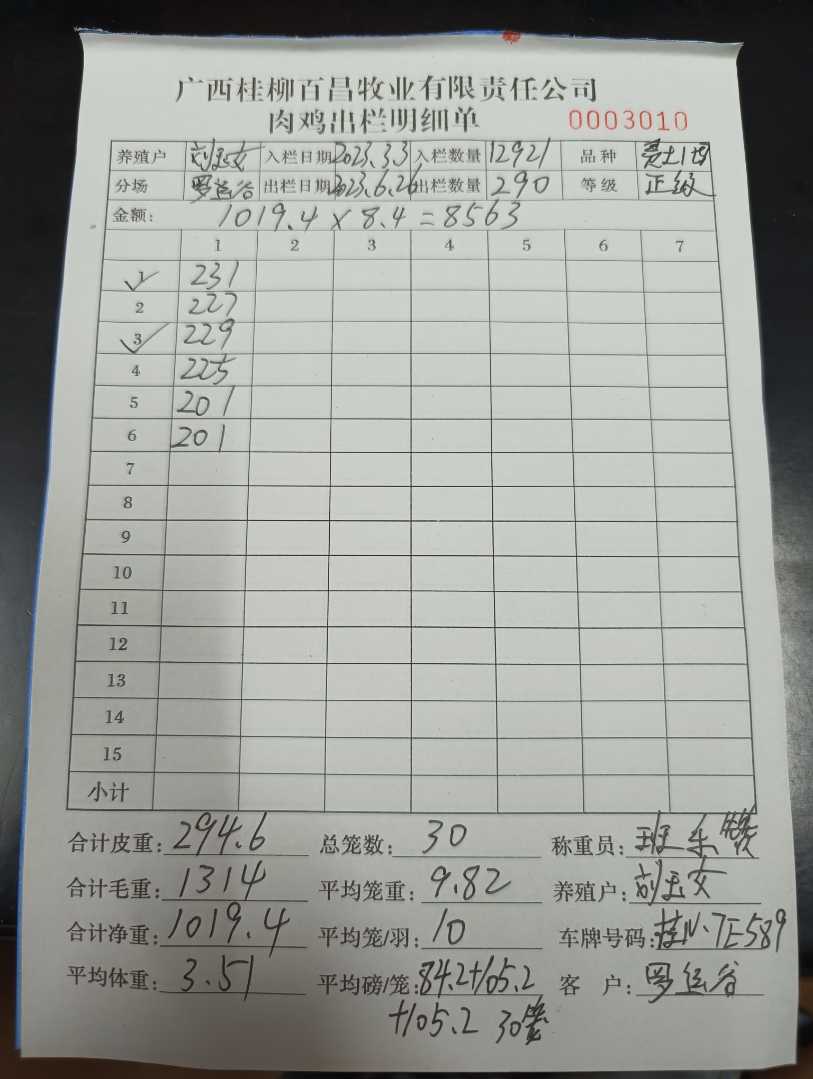 广西桂柳百昌牧业有限责任公司
肉鸡出栏明细单 0003010
养殖户 刘玉女 入栏日期 2023.3.3 入栏数量 12921 品种
分场 罗运谷 出栏日期 2023.6.26 出栏数量 290 等级 正级
金额: 1019.4 x 8.4 = 8563
1 2 3 4 5 6 7
1 231
2 227
3 229
4 225
5 201
6 201
7
8
9
10
11
12
13
14
15
小计
合计皮重: 294.6 总笼数: 30 称重员: 班
合计毛重: 1314 平均笼重: 9.82 养殖户: 刘玉女
合计净重: 1019.4 平均笼/羽: 10 车牌号码: 桂N·7E589
平均体重: 3.51 平均磅/笼: 84.2+105.2 客 户: 罗运谷
+105.2 30笼